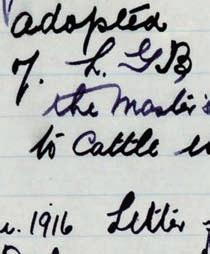 adopted
7. L. G B,
the Master's
to Cattle
1916 Letter